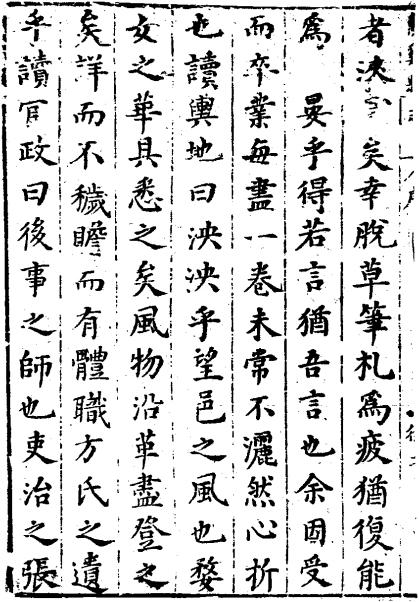 者浹矣幸脫草筆札爲疲猶復能
爲 晏乎得若言猶吾言也余因受
而卒業每盡一卷未常不灑然心折
也讀輿地曰泱泱乎望邑之風也婺
女之華具悉之矣風物沿革盡登之
矣詳而不穢瞻而有體職方氏之遺
乎讀官政曰後事之師也吏治之張